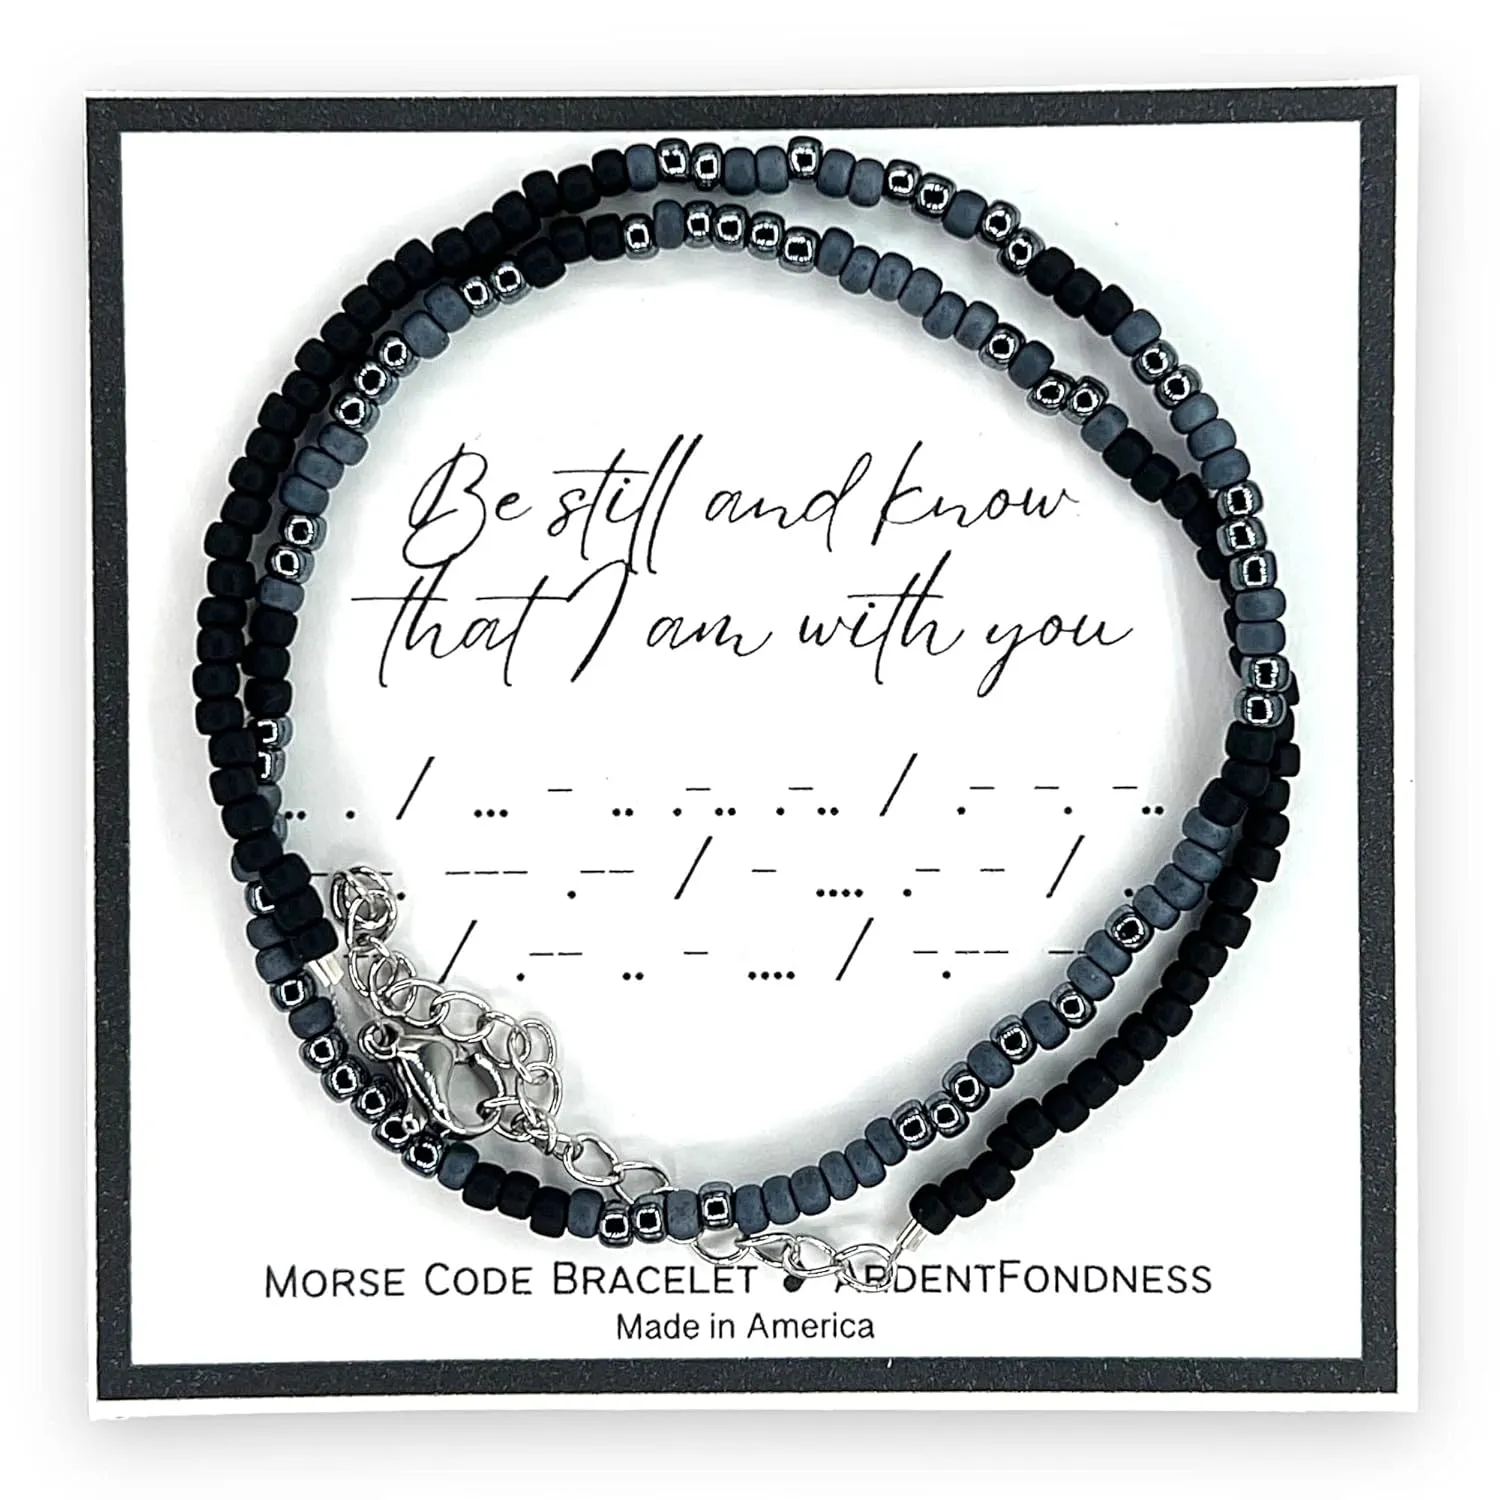 Be still and know
that I am with you
.. . / ... - .. .-.. .-.. / .- -. -..
--. --- .-- / - .... .- - / .
/ .-- .. - .... / -.-- --
MORSE CODE BRACELET • ARDENTFONDNESS
Made in America